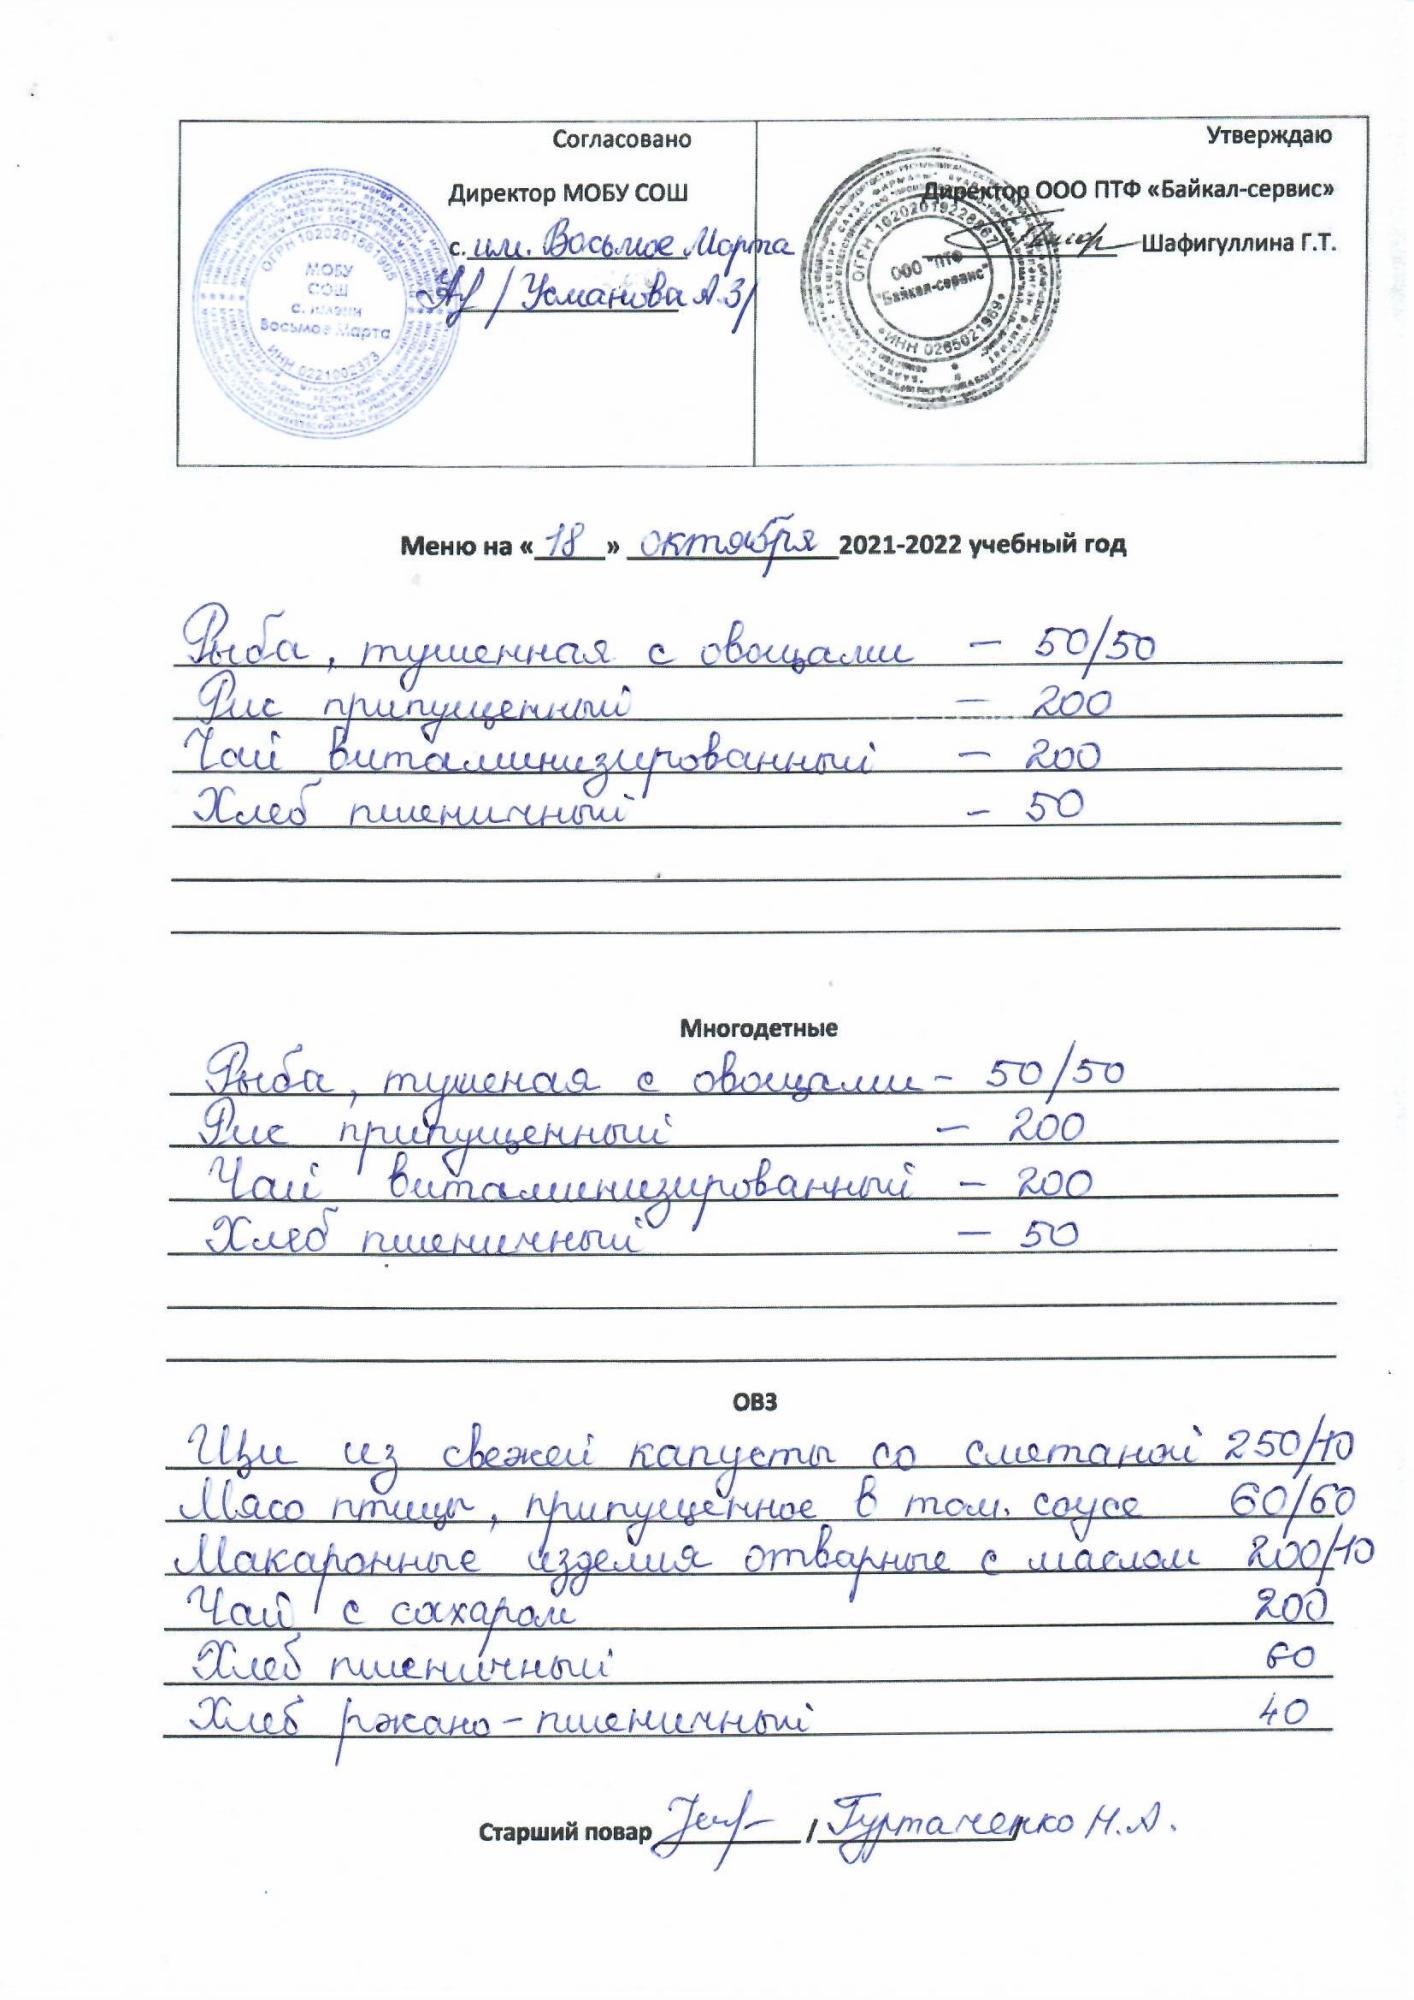 Согласовано
Директор МОБУ СОШ
с. им. Восьмое Марта
/ Усманова А.З/
ОГРН
МОБУ
СОШ
с. имени
Восьмое Марта
ИНН 0221002373
Утверждаю
Директор ООО ПТФ «Байкал-сервис»
Шафигуллина Г.Т.
ООО "ПТФ
"Байкал-сервис"
ИНН 0265021969
Меню на « 18 » октября 2021-2022 учебный год
Рыба, тушенная с овощами – 50/50
Рис припущенный – 200
Чай витаминизированный – 200
Хлеб пшеничный – 50
Многодетные
Рыба, тушеная с овощами - 50/50
Рис припущенный – 200
Чай витаминизированный – 200
Хлеб пшеничный – 50
ОВЗ
Щи из свежей капусты со сметаной 250/10
Мясо птицы, припущенное в том. соусе 60/60
Макаронные изделия отварные с маслом 200/10
Чай с сахаром 200
Хлеб пшеничный 60
Хлеб ржано-пшеничный 40
Старший повар / Гуртаченко Н.А.